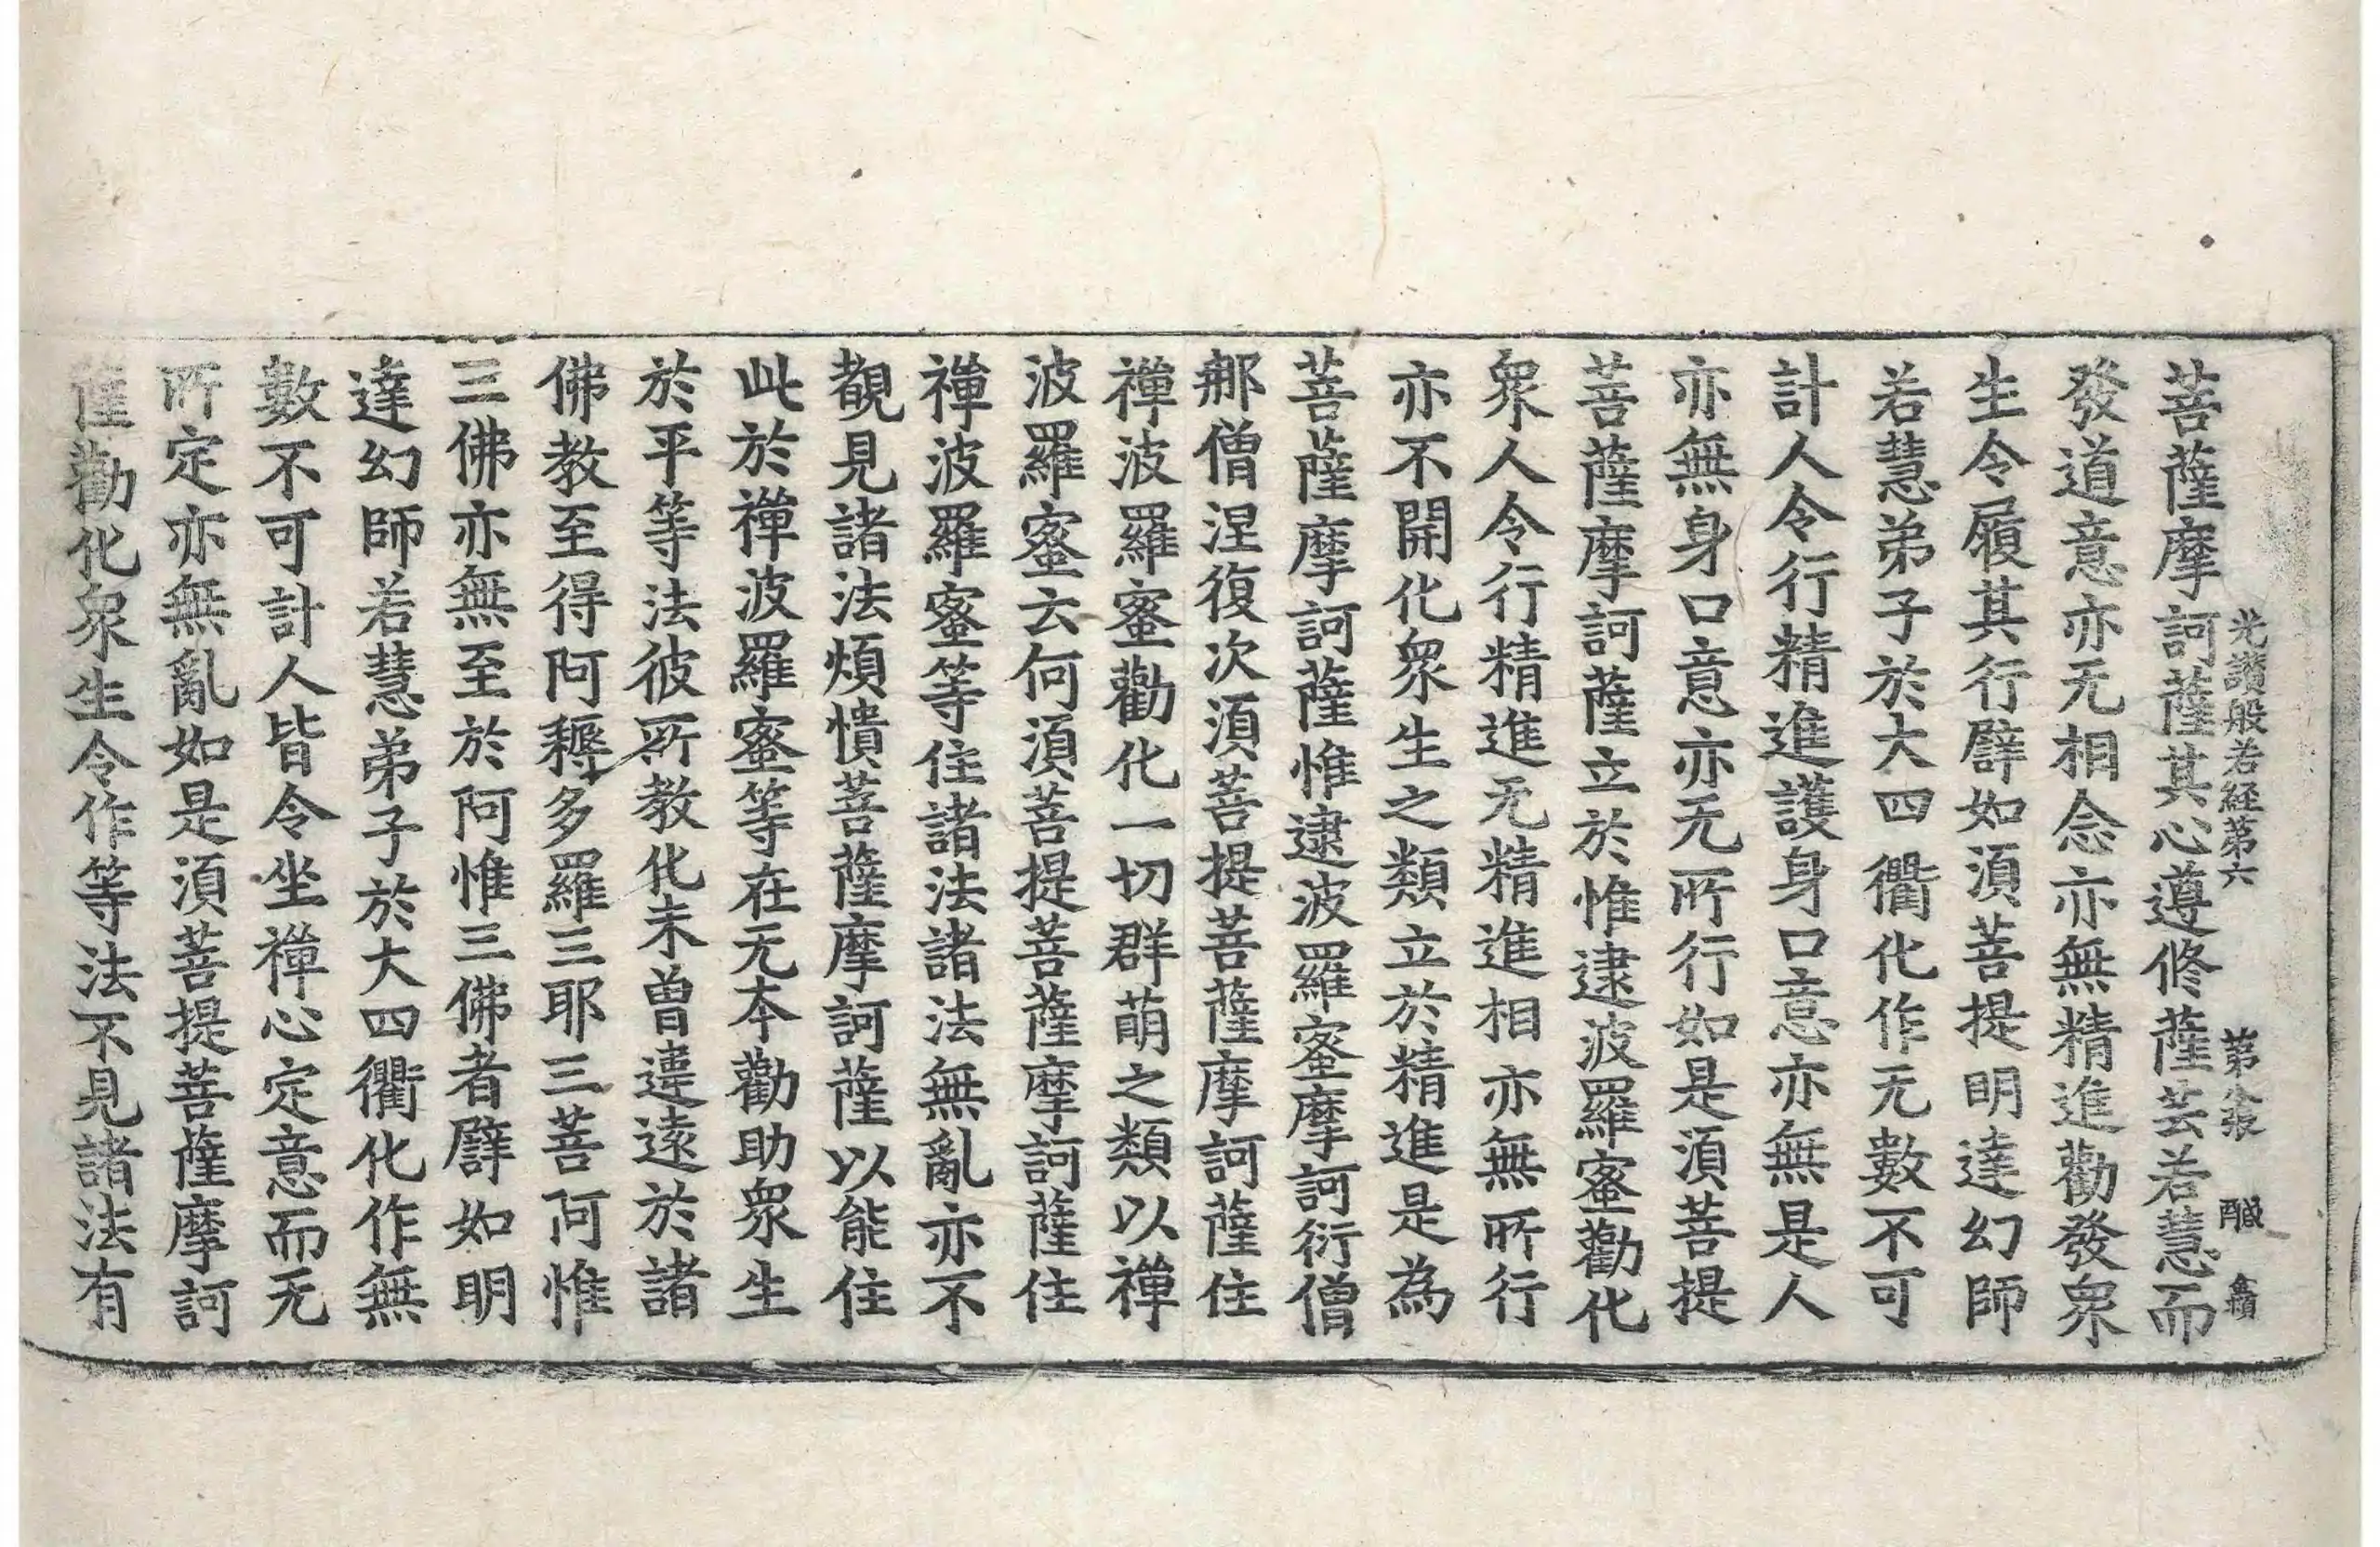 光讃般若経第六 第八張 醎
菩薩摩訶薩其心遵修薩芸若慧而
發道意亦无相念亦無精進勸發衆
生令履其行譬如須菩提明達幻師
若慧弟子於大四衢化作无數不可
計人令行精進護身口意亦無是人
亦無身口意亦无所行行如是須菩提
菩薩摩訶薩立於惟逮波羅蜜勸化
衆人令行精進无精進相亦無所行
亦不開化衆生之類立於精進是為
菩薩摩訶薩惟逮波羅蜜摩訶衍僧
那僧涅復次須菩提菩薩摩訶薩住
禪波羅蜜勸化一切群萌之類以禪
波羅蜜云何須菩提菩薩摩訶薩住
禪波羅蜜等住諸法諸法無亂亦不
覩見諸法煩憒菩薩摩訶薩以能住
此於禪波羅蜜等在无本勸助衆生
於平等法彼所教化未曾違遠於諸
佛教至得阿耨多羅三耶三菩阿惟
三佛亦無至於阿惟三佛者譬如明
達幻師若慧弟子於大四衢化作無
數不可計人皆令坐禪心定意而无
所定亦無亂如是須菩提菩薩摩訶
薩勸化衆生令作等法不見諸法有